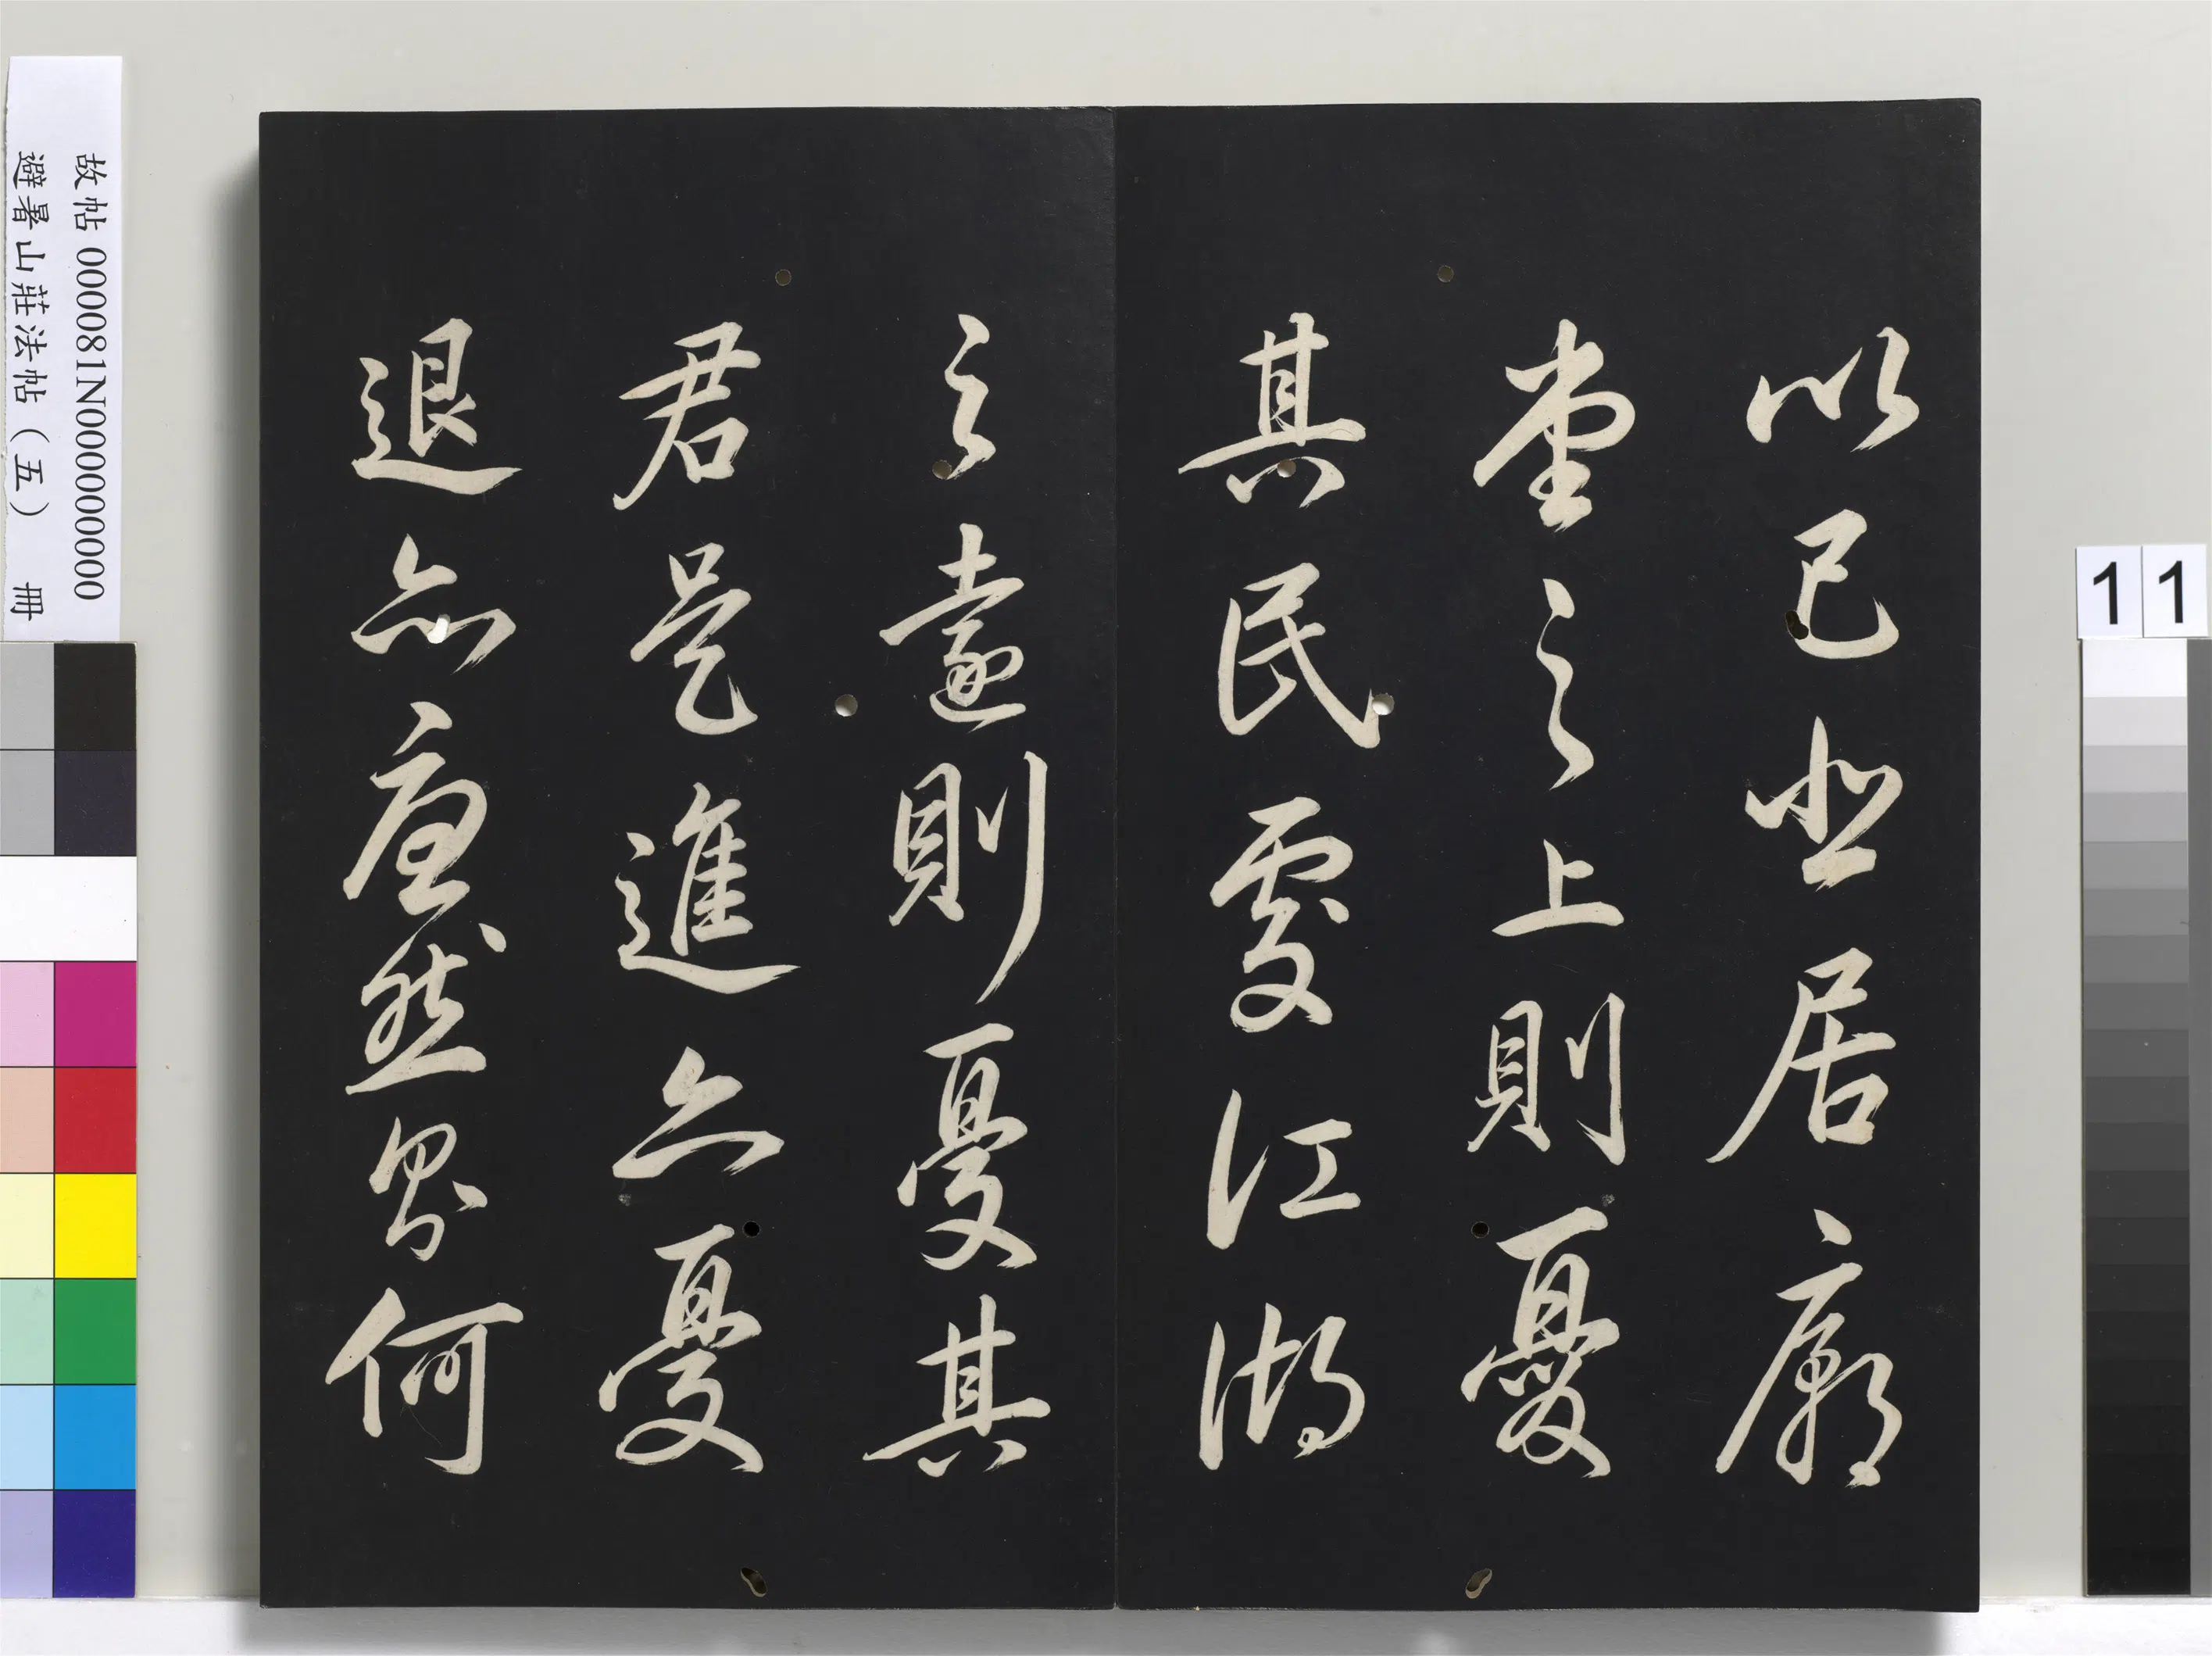 以己悲居廟
堂之上則憂
其民處江湖
之遠則憂其
君是進亦憂
退亦憂然則何
故帖 000081N000000000
避暑山莊法帖（五） 冊
11